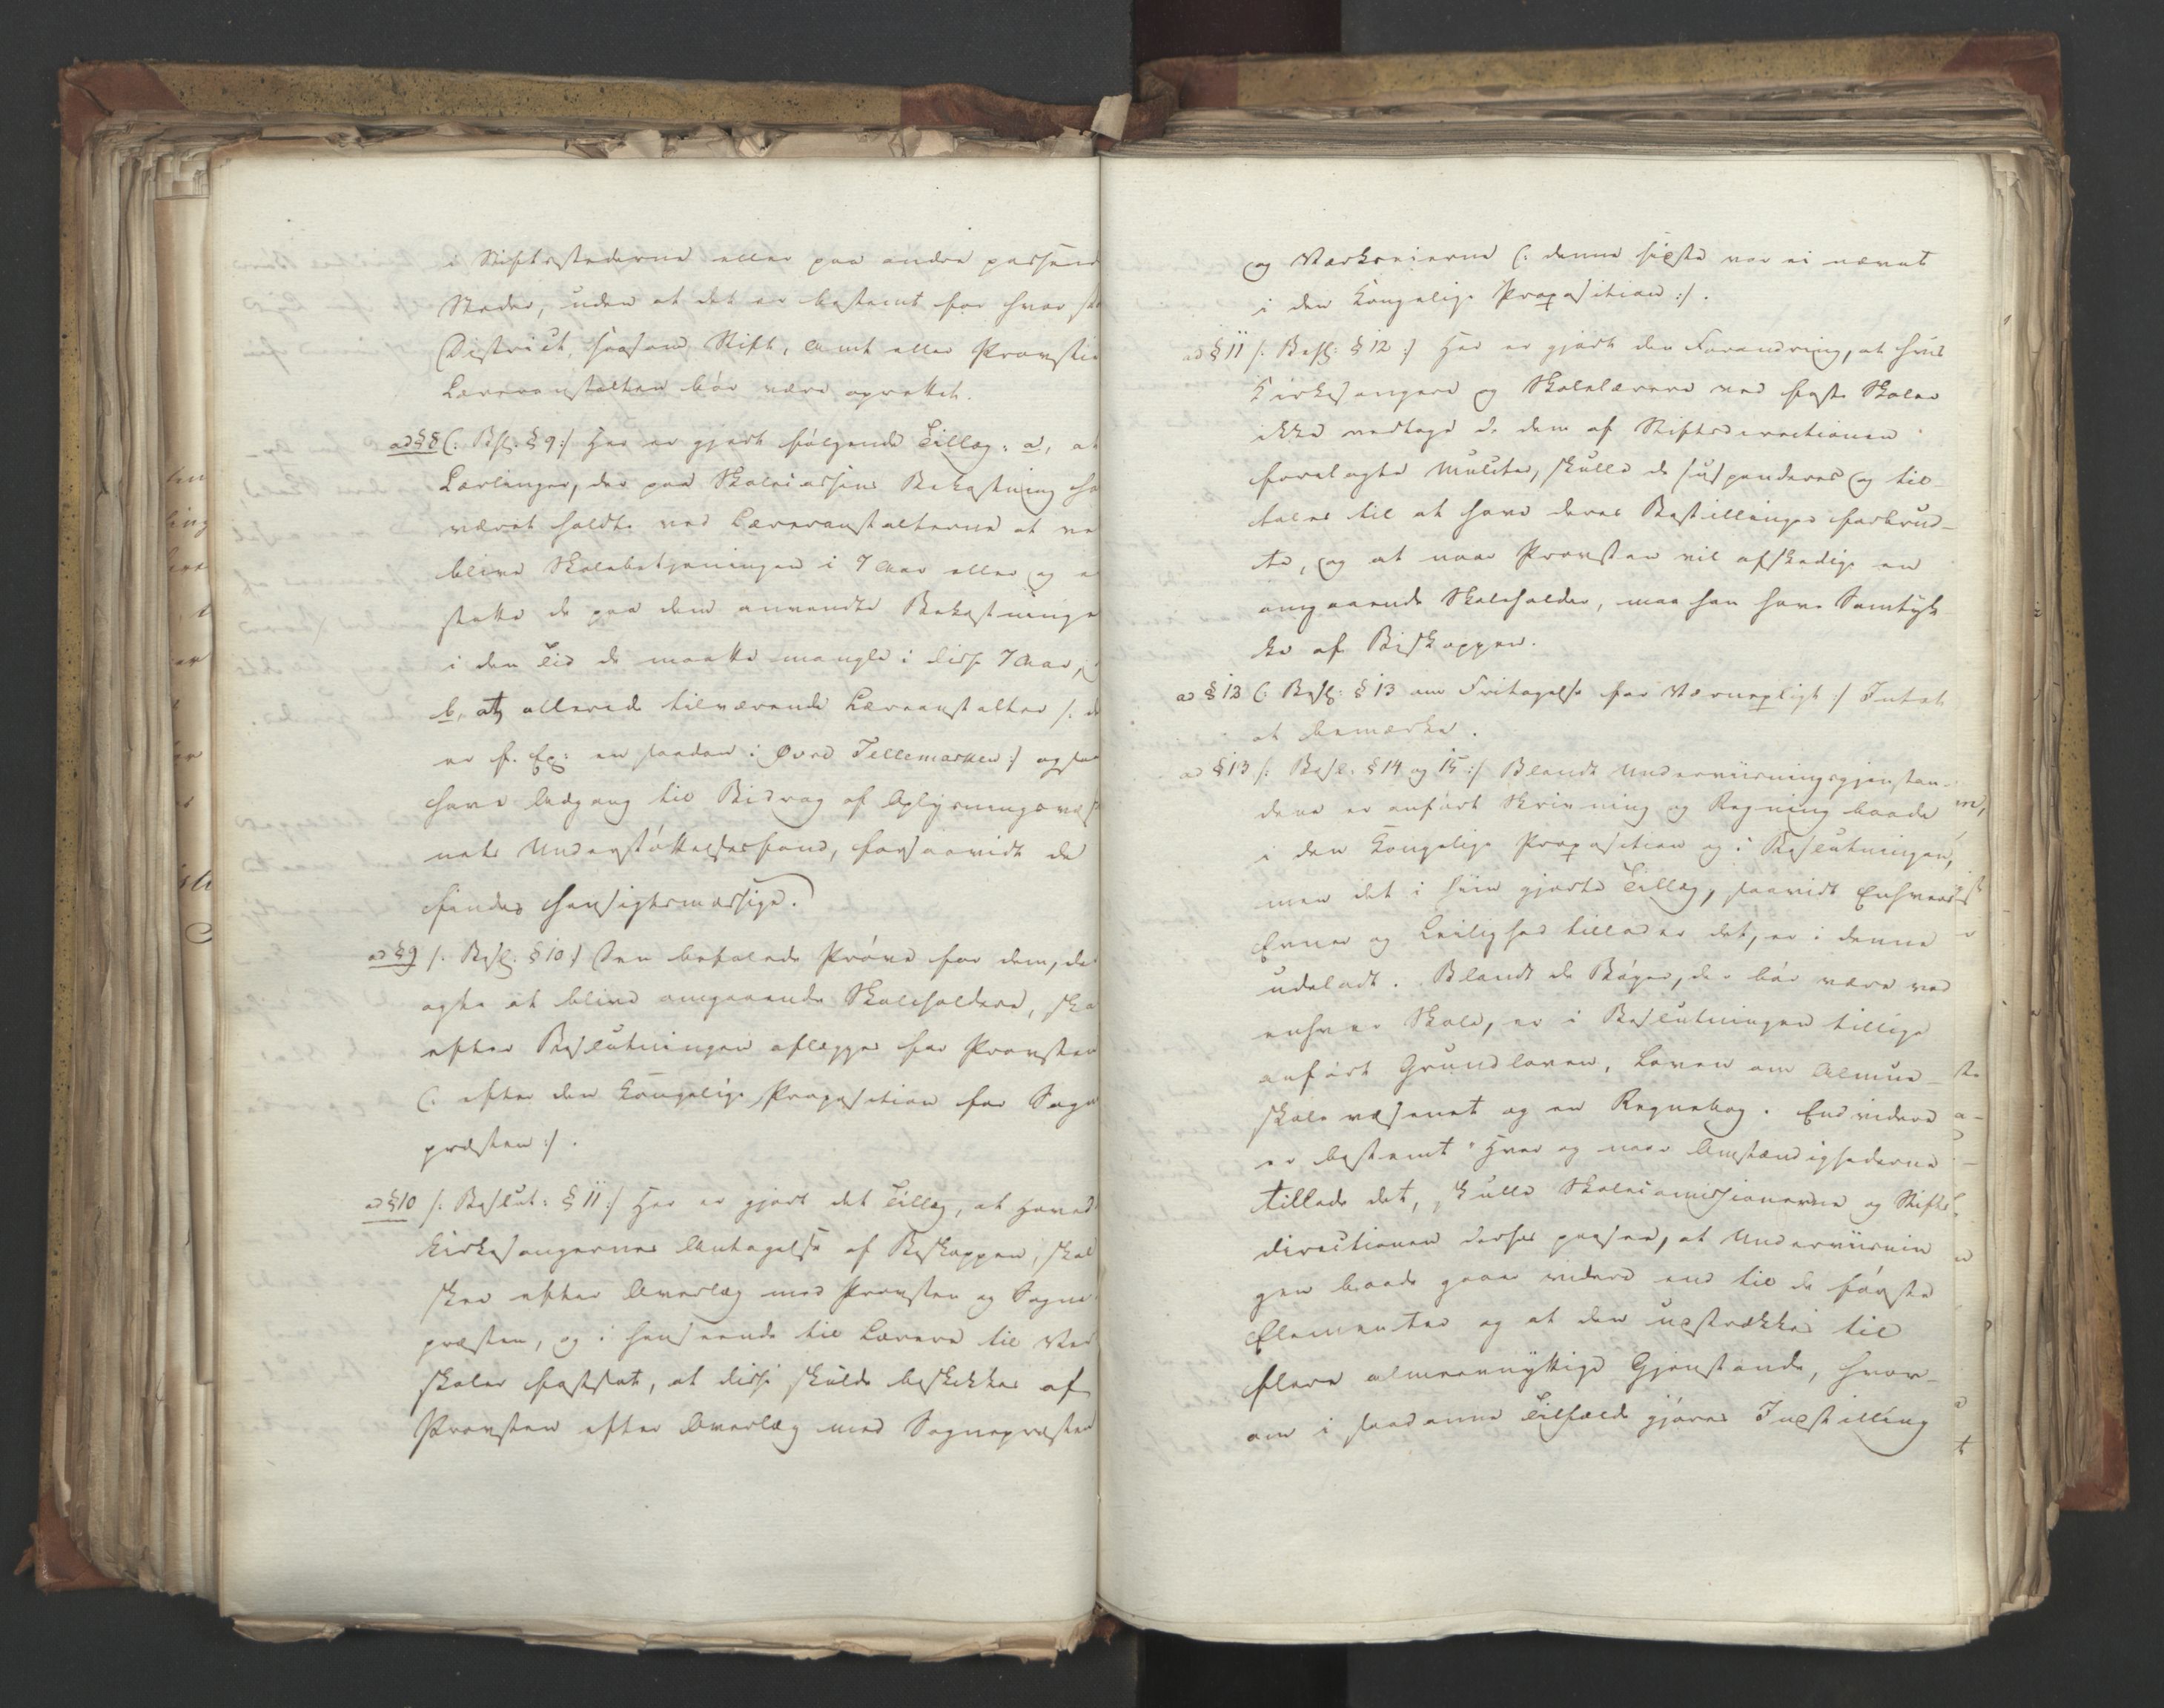 i Stiftsstæderne eller paa andre passende
Steder, uden at det er bestemt for hvor stort
District, saasom Stift, Amt eller Provstie
Læreranstalten bør være oprettet.
ad § 8 (: Besl. § 9 :) Her er gjort følgende Tillæg: a, at
Lærlinger, der paa Skolecassens Bekostning ha
været holdte ved Læreranstalterne at ved
blive Skolebetjeningen i 7 Aar eller og er
statte de paa dem anvendte Bekostninger
i den Tid de maatte mangle i disse 7 Aar,
b, at allerede tilværende Læreanstalter /: der
er f. Ex: en saadan i Øvre Tellemarken :/ ogsaa
have Adgang til Bidrag af Oplysningsvæs
nets Understøttelsesfond, forsaavidt de
findes hensigtsmæssige.
ad § 9 /: Besl: § 10 :/ Den befalede Prøve for dem, der
agte at blive omgaaende Skoleholdere, skal
efter Beslutningen aflægges for Provsten
(: efter den Kongelige Proposition for Sogne
præsten :/.
ad § 10 /: Beslut: § 11 :/ Her er gjort det Tillæg, at Hoved
kirkesangernes Antagelse af Biskoppen, skal
skee efter Overlæg med Provsten og Sogne
præsten, og i Henseende til Lærere til
skoler fastsat, at disse skulde beskikkes af
Provsten efter Overlæg med Sognepræsten
og Værkseierne (: denne sidste var ei nævnt
i den Kongelige Proposition :/.
ad § 11 /: Besl: § 12 :/ Her er gjort den Forandring, at hvis
Kirkesangere og Skolelærere ved faste Skoler
ikke vedtage de dem af Stiftsdirectionen
forelagte Mulcter, skulle de suspenderes og til-
tales til at have deres Bestillinger forbrud-
te, og at naar Provsten vil afskedige en
omgaaende Skoleholder, maa han have Samtyk
ke af Biskoppen.
ad § 12 (: Besl: § 13 om Fritagelse for Værnepligt :/ Intet
at bemærke.
ad § 13 /: Besl. § 14 og 15 :/ Blandt Underviisningsgjenstan-
dene er anført Skrivning og Regning baade
i den Kongelige Proposition og i Beslutningen,
men det i hiin gjorte Tillæg, saavidt Enhvers
Evner og Leilighed tillader det, er i denne
udeladt. Blandt de Bøger, der bør være ved
enhver Skole, er i Beslutningen tillige
anført Grundloven, Loven om Almue-
skolevæsenet og en Regnebog. Endvidere
er bestemt "Hvor og naar Omstændighederne
tillade det, skulle Skolecommissionerne og Stifts
directionen derhos paasee, at Underviisnin
gen baade gaaer videre end til de første
Elementer og at den udstrækkes til
flere almeennyttige Gjenstande, hvor-
om i saadanne Tilfælde gjøres Indstilling